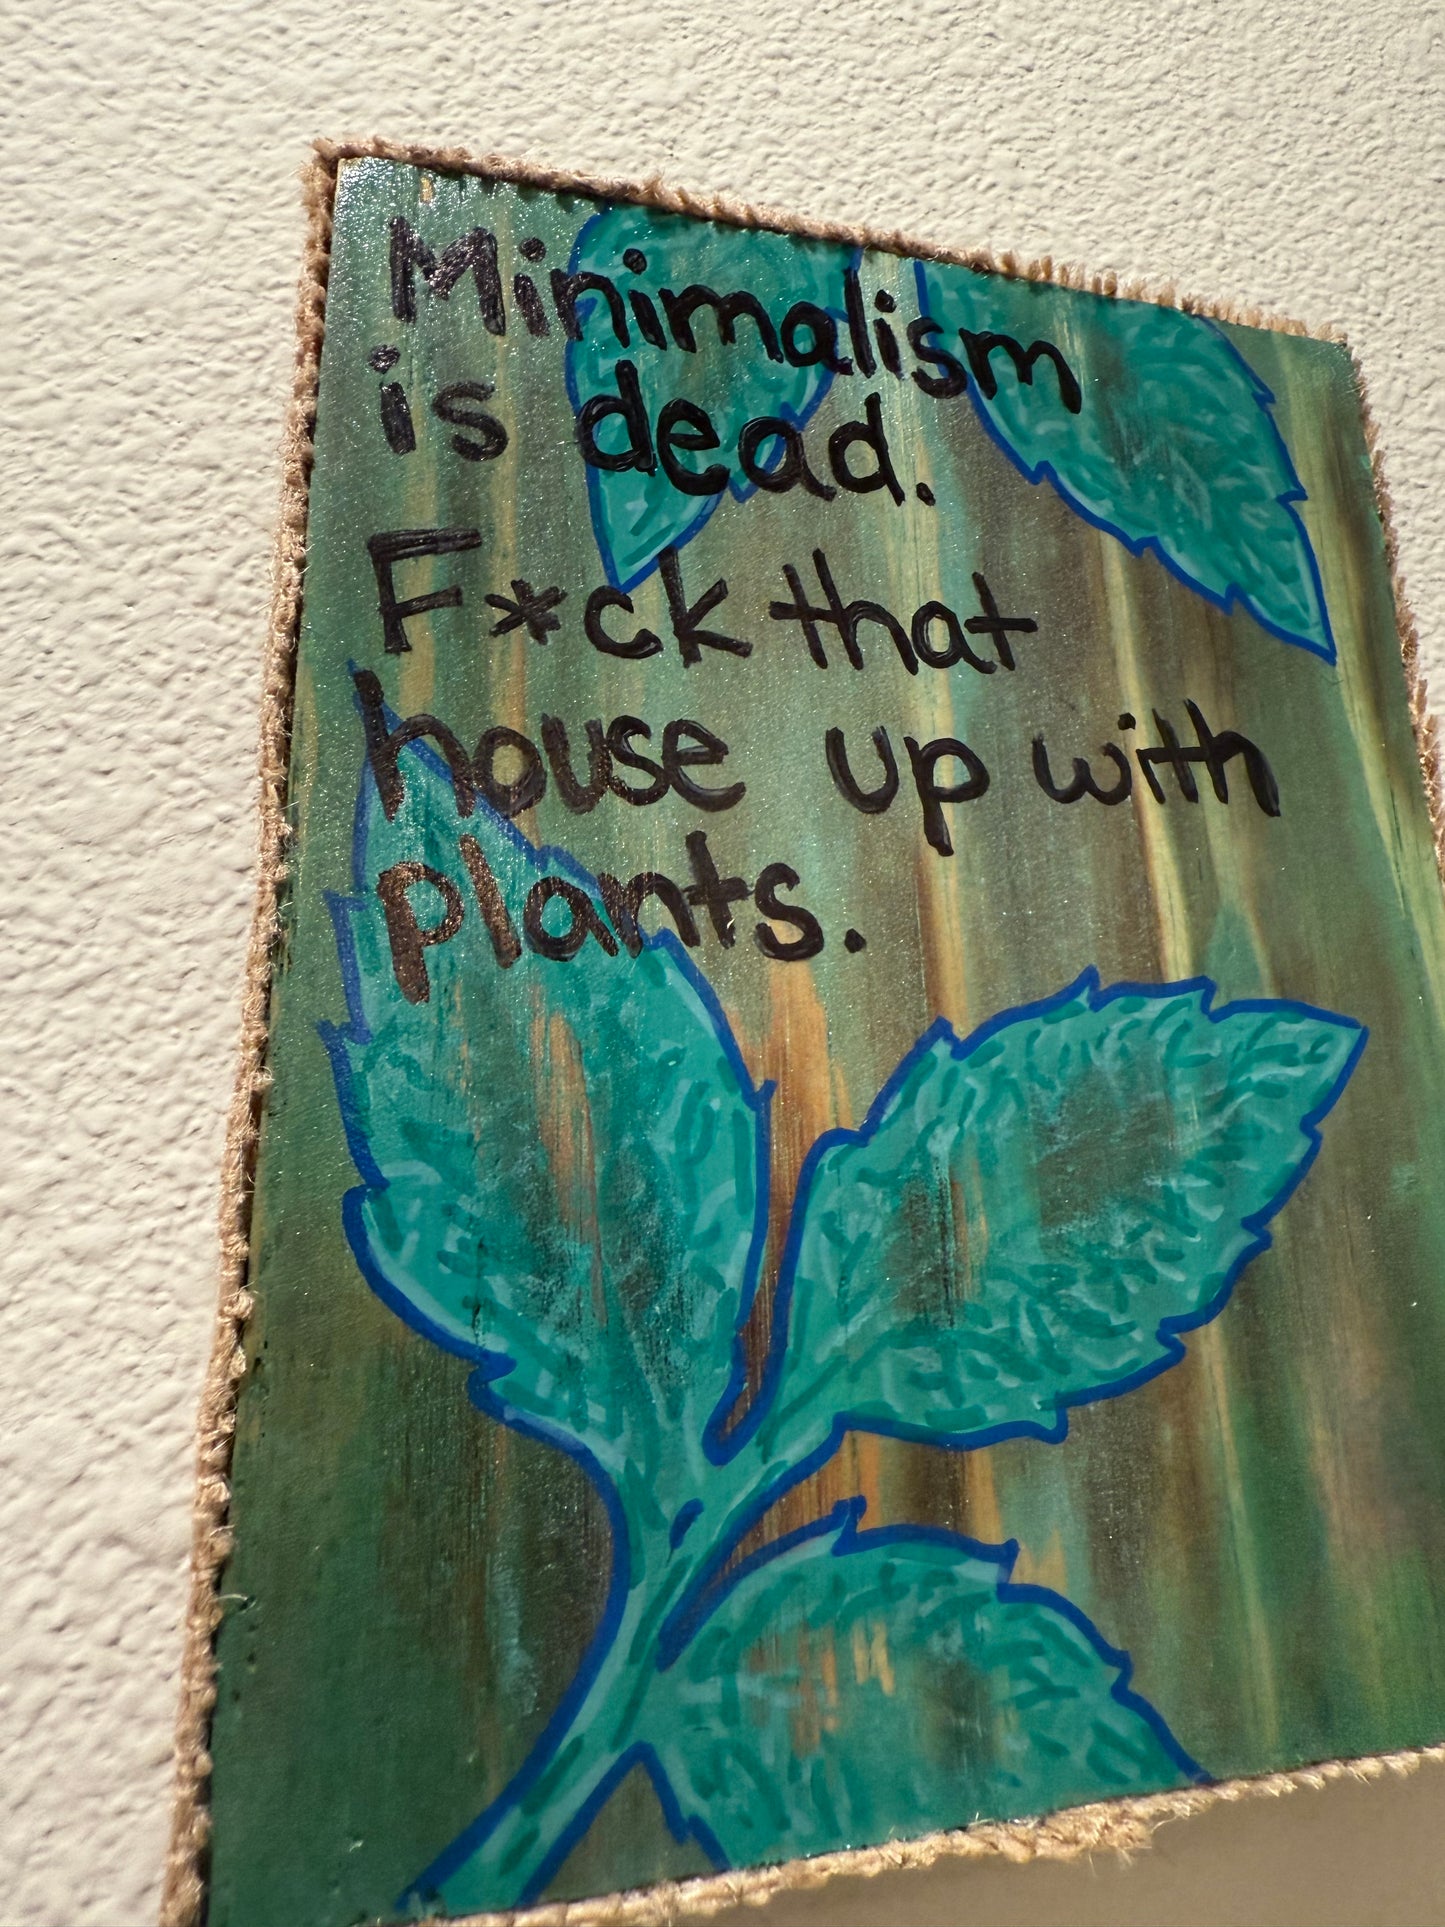 Minimalism
is dead.
F*ck that
house up with
plants.